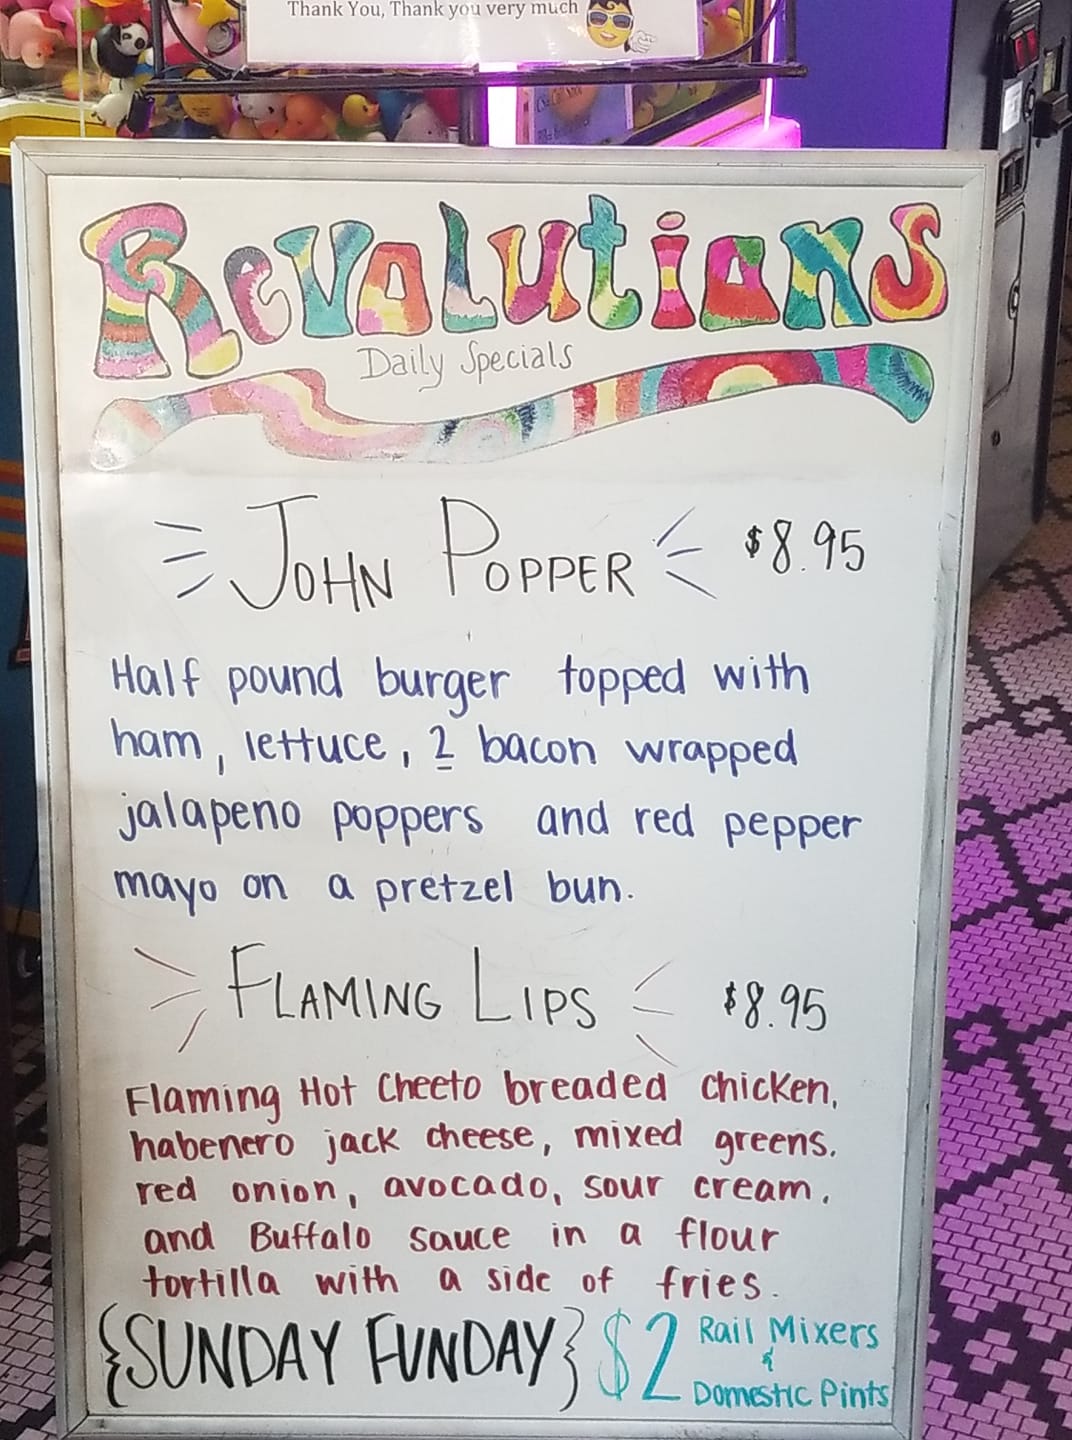 Thank You, Thank you very much
Revolutions
Daily Specials
John Popper $8.95
Half pound burger topped with
ham, lettuce, 2 bacon wrapped
jalapeno poppers and red pepper
mayo on a pretzel bun.
Flaming Lips $8.95
Flaming Hot Cheeto breaded chicken,
habenero jack cheese, mixed greens,
red onion, avocado, sour cream,
and Buffalo sauce in a flour
tortilla with a side of fries.
{SUNDAY FUNDAY} $2 Rail Mixers
&
Domestic Pints